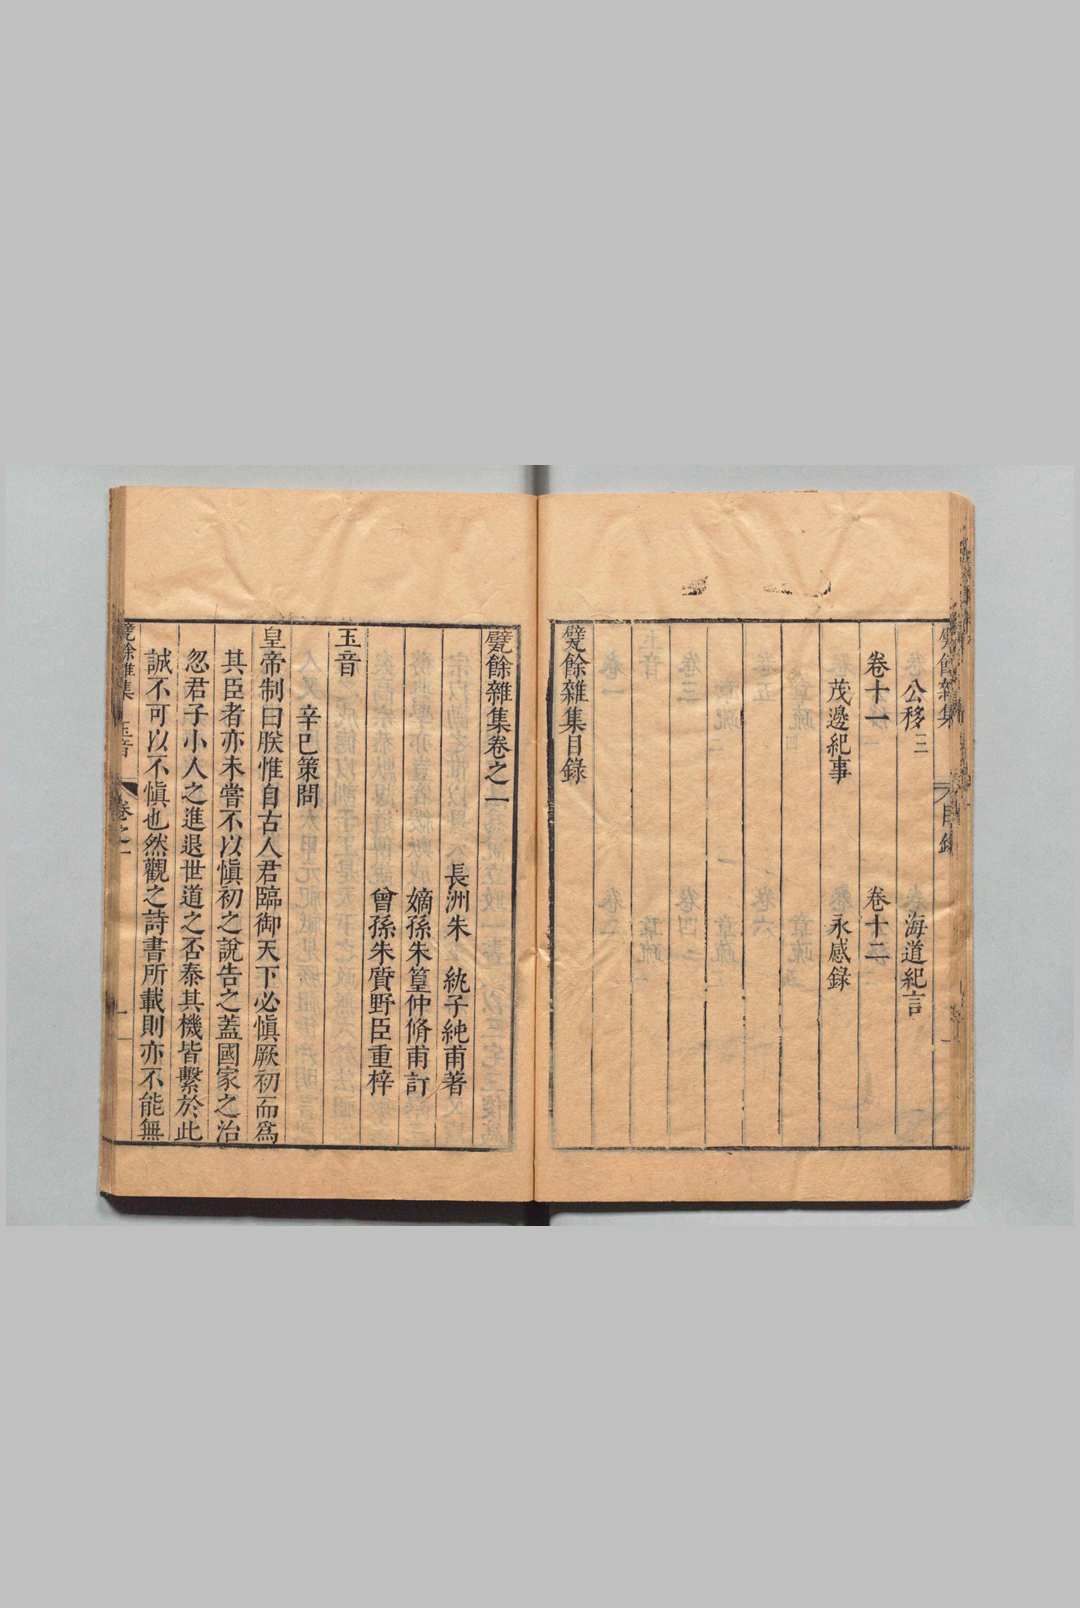 公移三
海道紀言
卷十一
卷十二
茂邊紀事
永感錄
甓餘雜集目錄
甓餘雜集卷之一
長洲朱 紈子純甫著
嫡孫朱篁仲脩甫訂
曾孫朱質野臣重梓
玉音
辛巳策問
皇帝制曰朕惟自古人君臨御天下必愼厥初而爲
其臣者亦未嘗不以愼初之說告之蓋國家之治
忽君子小人之進退世道之否泰其機皆繫於此
誠不可以不愼也然觀之詩書所載則亦不能無
甓餘雜集 玉音 卷之一